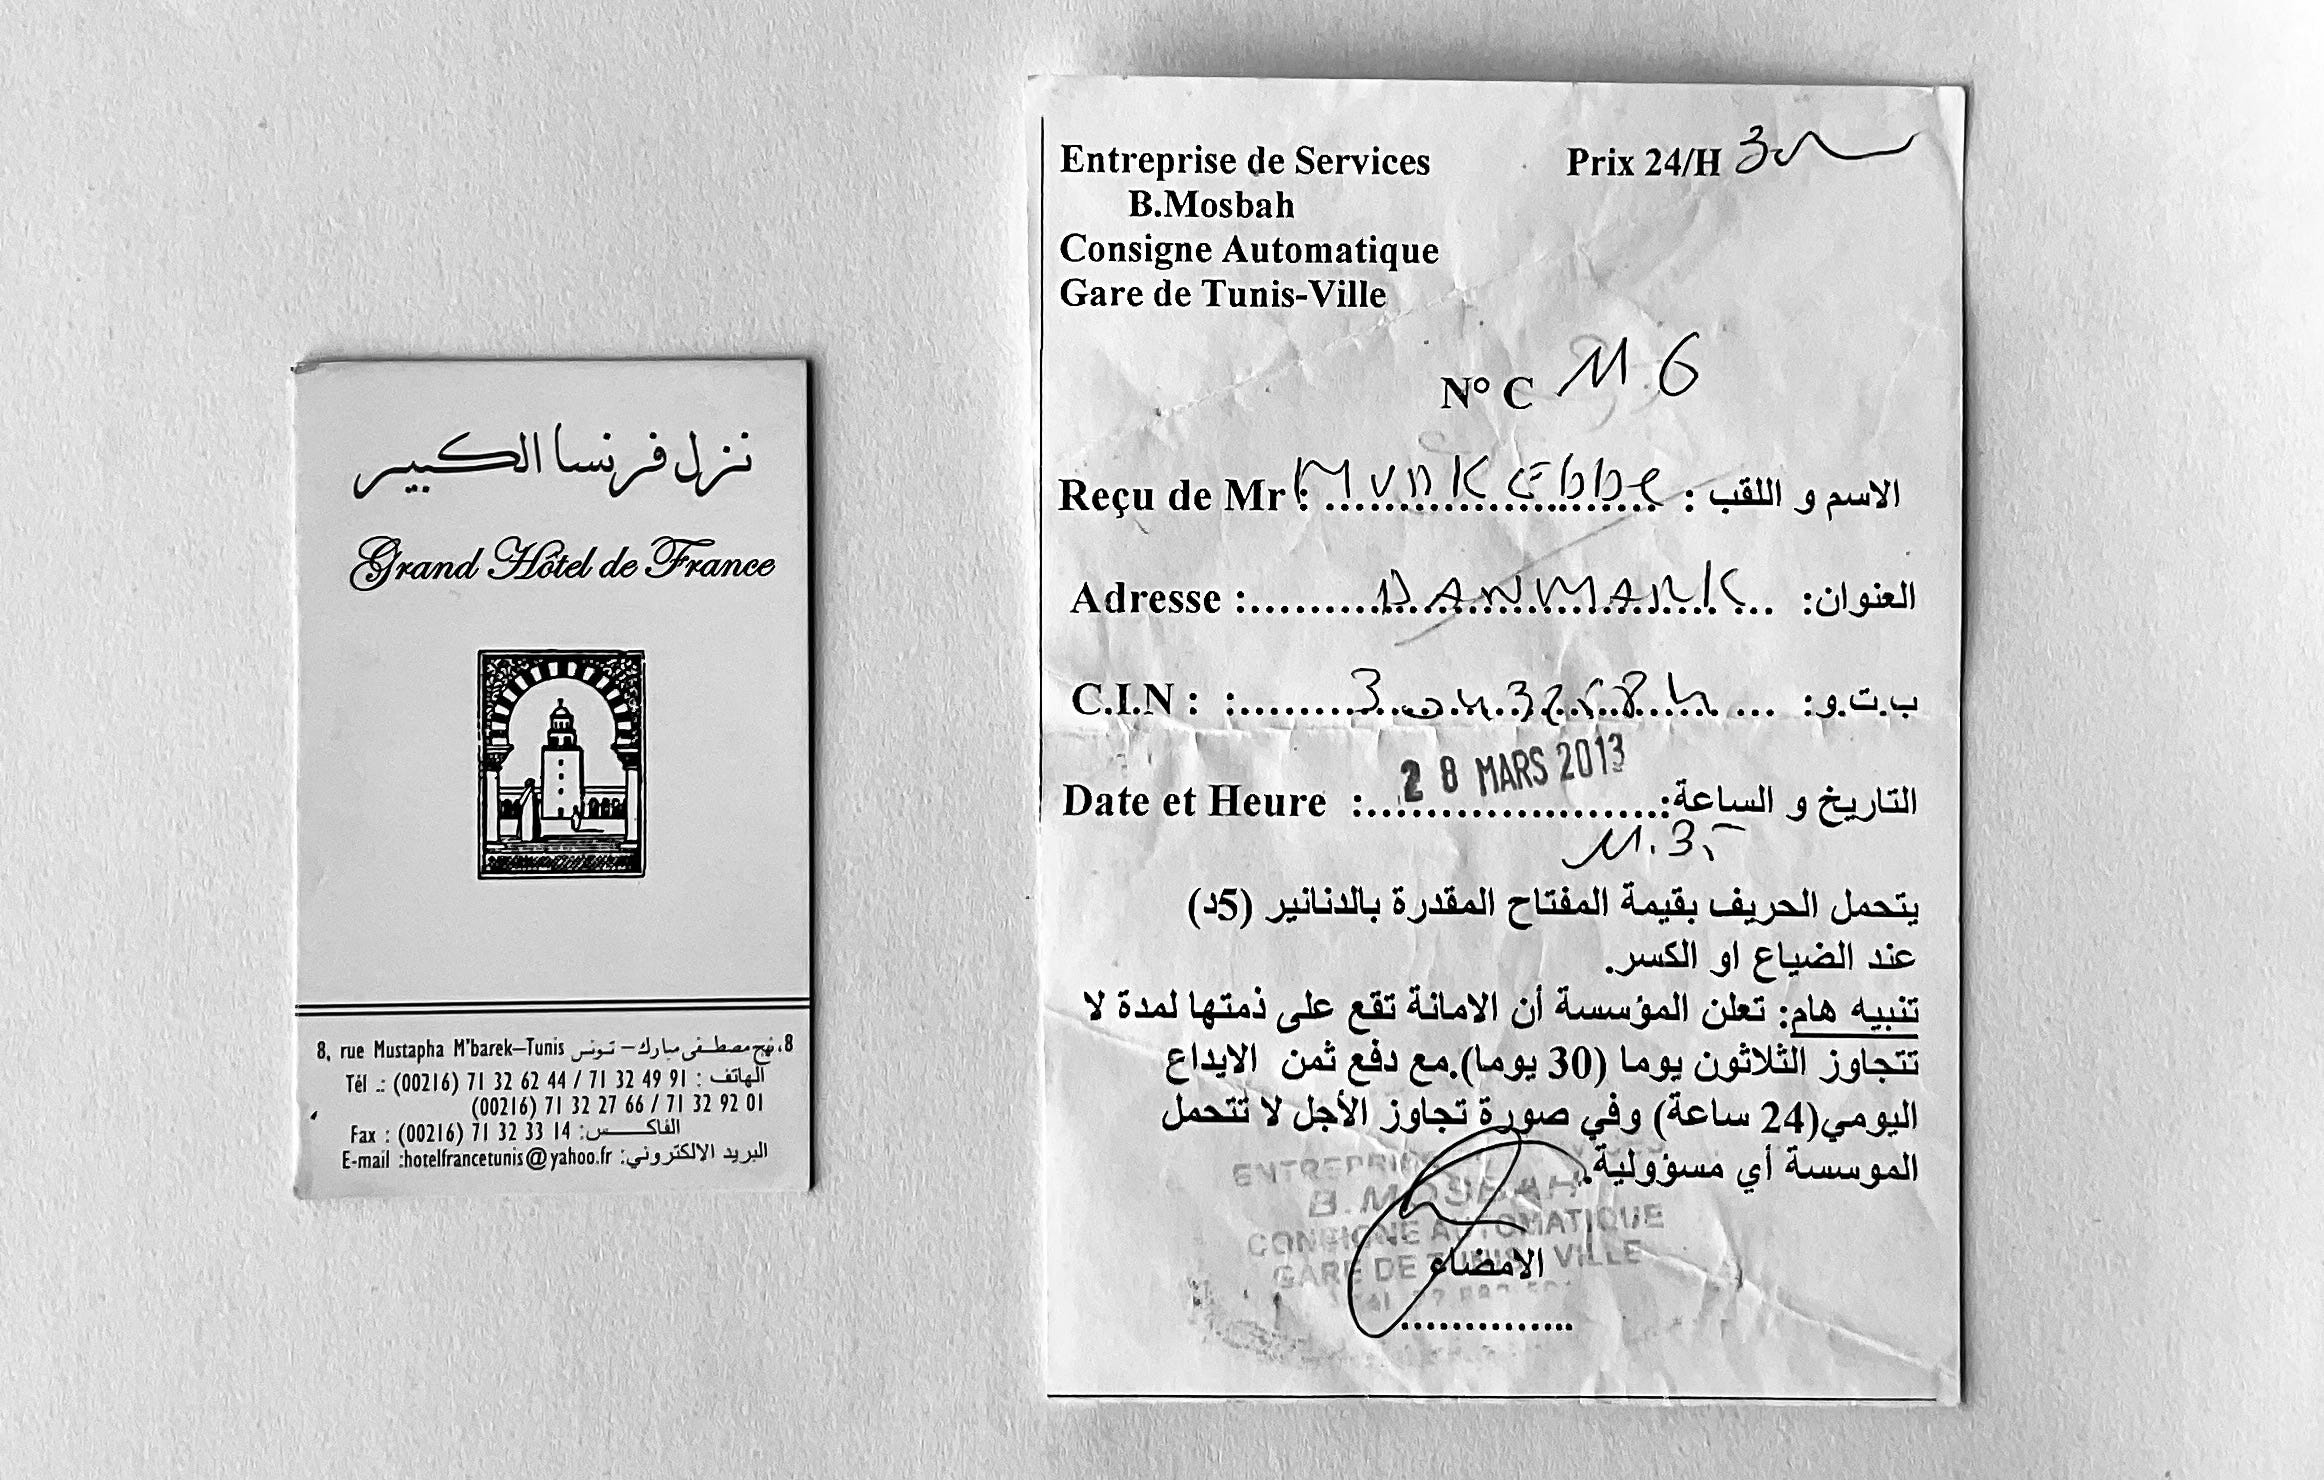 نزل فرنسا الكبير
Grand Hôtel de France
8, rue Mustapha M'barek–Tunis 8، نهج مصطفى مبارك – تونس
Tél .: (00216) 71 32 62 44 / 71 32 49 91 : الهاتف
(00216) 71 32 27 66 / 71 32 92 01
Fax : (00216) 71 32 33 14 :الفاكس
E-mail :hotelfrancetunis@yahoo.fr :البريد الالكتروني
Entreprise de Services Prix 24/H
B.Mosbah
Consigne Automatique
Gare de Tunis-Ville
N° C M.6
Reçu de Mr : Munk Ebbe : الاسم و اللقب
Adresse : DANMARK :العنوان
C.I.N : : :ب.ت.و
Date et Heure : 28 MARS 2013 :التاريخ و الساعة
يتحمل الحريف بقيمة المفتاح المقدرة بالدنانير (5د)
عند الضياع او الكسر.
تنبيه هام: تعلن المؤسسة أن الامانة تقع على ذمتها لمدة لا
تتجاوز الثلاثون يوما (30 يوما).مع دفع ثمن الايداع
اليومي(24 ساعة) وفي صورة تجاوز الأجل لا تتحمل
الموسسة أي مسؤولية.
ENTREPRISE
B.MOSBAH
CONSIGNE AUTOMATIQUE
GARE DE TUNIS VILLE
الامضاء